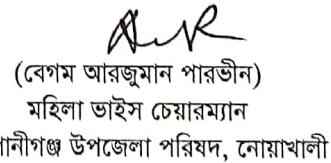 (বেগম আরজুমান পারভীন)
মহিলা ভাইস চেয়ারম্যান
উপজেলা পরিষদ, নোয়াখালী